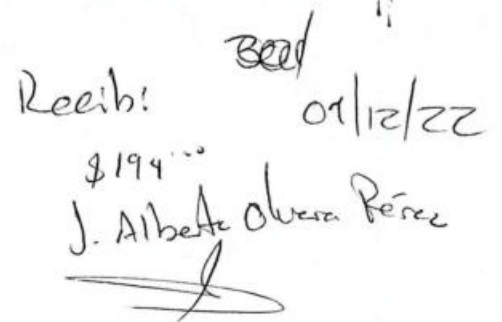 Recibi
01/12/22
$194
J. Alberto Olvera Pérez